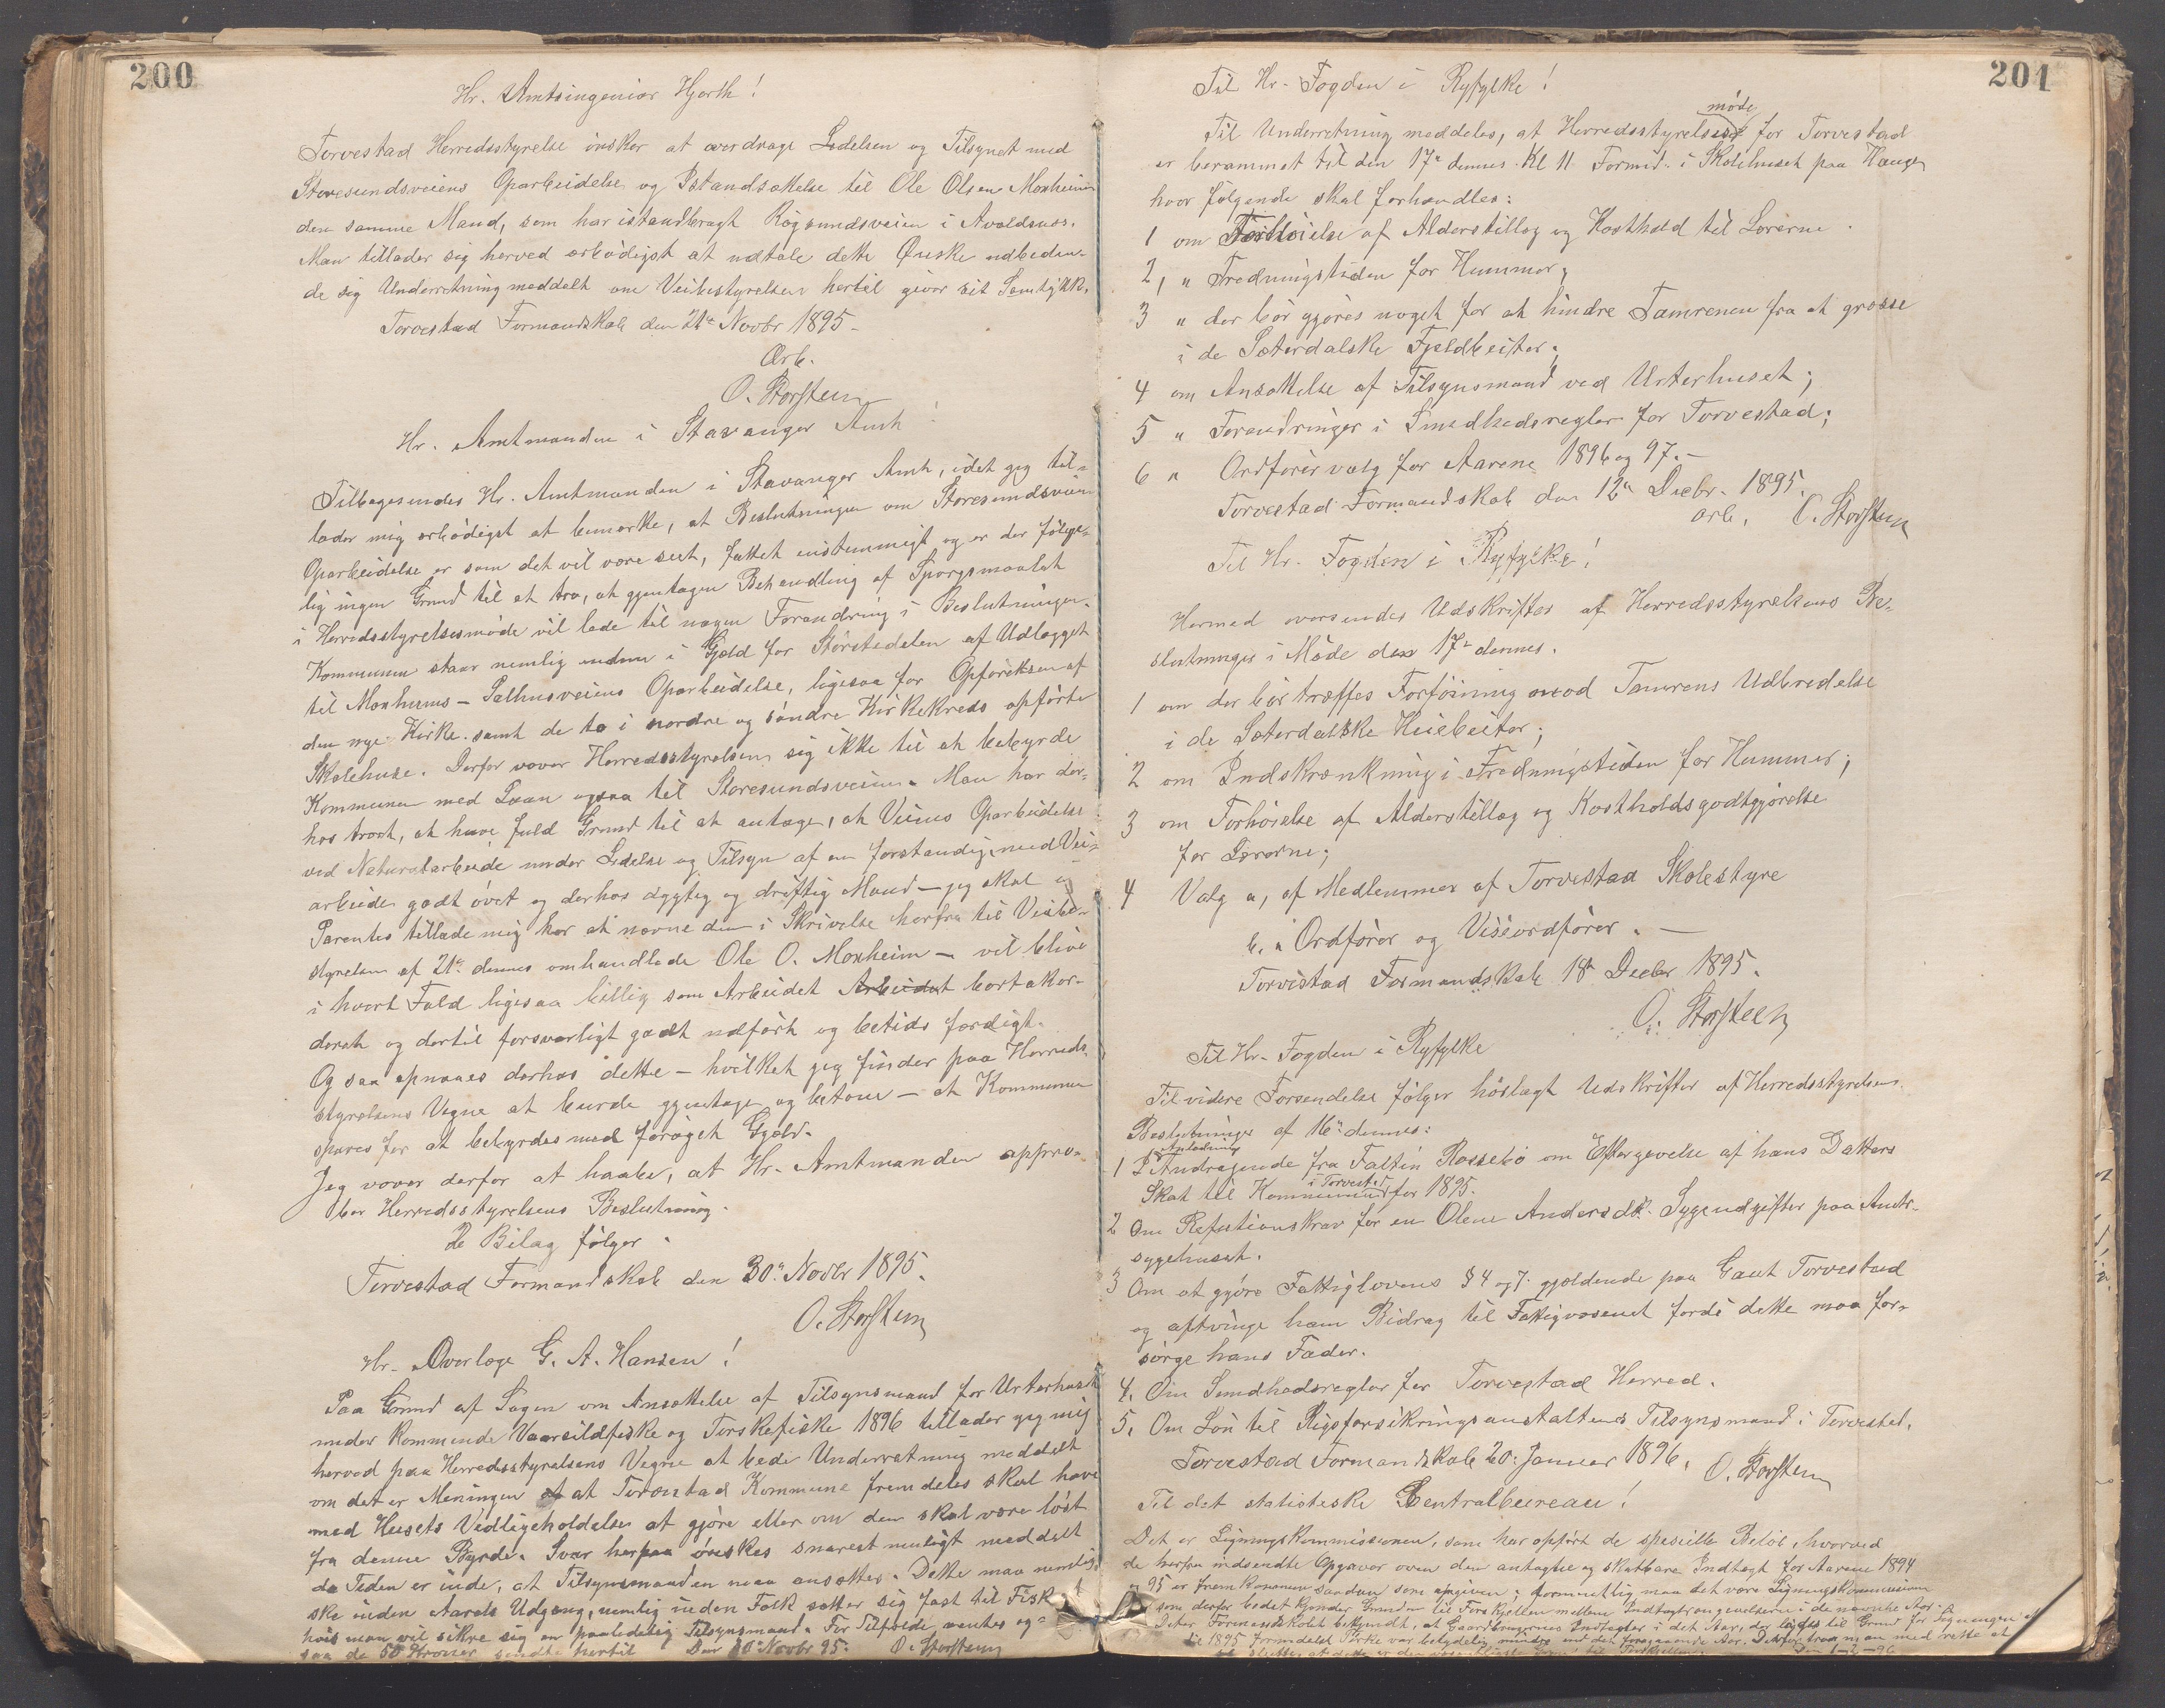 200
Hr. Amtsingeniør Hjorth!
Torvestad Herredsstyrelse ønsker at overdrage Ledelsen og Tilsynet med
Storesundsveiens Oparbeidelse og Istandsættelse til Ole Olsen Monheim
den samme Mand, som har istandbragt Røgsundsveien i Avaldsnæs.
Man tillader sig herved ærbødigst at udtale dette Ønske udbeden-
de sig Underretning meddelt om Veibestyrelsen hertil giver sit Samtykk.
Torvestad Formandskab den 21de Novbr 1895 -
Ærb.
O. Storsteen
Hr. Amtmanden i Stavanger Amt!
Tilbagesendes Hr. Amtmanden i Stavanger Amt, idet jeg til-
lader mig ærbødigst at bemærke, at Beslutningen om Storesundsveien
Oparbeidelse er som det vil være seet, fattet enstemmigt og er der følge-
lig ingen Grund til at tro, at gjentagen Behandling af Spørgsmaalet
i Herredsstyrelsesmøde vil lede til nogen Forandring i Beslutningen.
Kommunen staar nemlig endnu i Gjæld for Størstedelen af Udlægget
til Monheims - Salhusveiens Oparbeidelse, ligesaa for Opførelsen af
den nye Kirke samt de to i nordre og søndre Kirkekreds opførte
Skolehuse. Derfor vover Herredsstyrelsen sig ikke til at bebyrde
Kommunen med Laan ogsaa til Storesundsveien. Man har der-
hos troet, at have fuld Grund til at antage, at Veiens Oparbeidelse
ved Naturalarbeide under Ledelse og Tilsyn af en forstandig, med Vei-
arbeide godt øvet og derhos dygtig og driftig Mand - jeg skal i
Parentes tillade mig her at nævne den i Skrivelse herfra til Veibe-
styrelsen af 21de dennes omhandlede Ole O. Monheim - vil blive
i hvert Fald ligesaa billig som Arbeidet Arbeidet bortakor-
deret og dertil forsvarligt godt udført og betids færdigt.
Og saa opnaaes derhos dette - hvilket jeg finder paa Herreds-
styrelsens Vegne at burde gjentage og betone - at Kommunen
spares for at bebyrdes med forøget Gjæld.
Jeg vover derfor at haabe, at Hr. Amtmanden appro-
ber Herredsstyrelsens Beslutning.
De Bilag følger.
Torvestad Formandskab den 30" Novbr 1895.
O. Storsteen
Hr. Overlæge G. A. Hansen!
Paa Grund af Sagen om Ansættelse af Tilsynsmand for Urterhuset
under kommende Vaarsildfiske og Torskefiske 1896 tillader jeg mig
herved paa Herredsstyrelsens Vegne at bede Underretning meddelt
om det er Meningen at at Torvestad Kommune fremdeles skal have
med Husets Vedligeholdelse at gjøre eller om den skal være løst
fra denne Byrde. Svar herpaa ønskes snarest muligt meddelt
da Tiden er inde, at Tilsynsmanden maa ansættes. Dette maa nemlig
ske inden Aarets Udgang, nemlig inden Folk sætter sig fast til Fisket
hvis man vil sikre sig en paalidelig Tilsynsmand. For Tilfælde ventes og-
saa de 50 Kroner sendte hertil Den 30" Novbr 95. O. Storsteen
201
Til Hr. Fogden i Ryfylke!
møde
Til Underretning meddeles, at Herredsstyrelses for Torvestad
er berammet til den 17de dennes Kl 11 Formid. i Skolehuset paa Hauge
hvor følgende skal forhandles:
1 om Forhøielse af Alderstillæg og Kosthold til Lærerne.
2, " Fredningstiden for Hummer;
3 " der bør gjøres noget for at hindre Tamrenen fra at græsse
i de Sæterdalske Fjeldbeiter;
4 om Ansættelse af Tilsynsmand ved Urterhuset;
5 " Forandringer i Sundhedsregler for Torvestad;
6 " Ordførervalg for Aarene 1896 og 97. -
Torvestad Formandskab den 12" Decbr. 1895.
ærb. O. Storsteen
Til Hr. Fogden i Ryfylke!
Hermed oversendes Udskrifter af Herredsstyrelsens Be-
slutninger i Møde den 17de dennes.
1 om der bør træffes Forføining mod Tamrens Udbredelse
i de Sæterdalske Heiebeiter;
2 om Indskrænkning i Fredningstiden for Hummer;
3 om Forhøielse af Alderstillæg og Kostholdsgodtgjørelse
for Lærerne;
4 Valg a, af Medlemmer af Torvestad Skolestyre
b. " Ordfører og Viseordfører. -
Torvestad Formandskab 18de Decbr 1895.
O. Storsteen
Til Hr. Fogden i Ryfylke
Til videre Forsendelse følger høslagt Udskrifter af Herredsstyrelsens
Beslutninger af 16" dennes:
Anledning
1 I Andragende fra Faltin Rossebø om Eftergivelse af hans Datters
i Torvestad
Skat til Kommunen for 1895.
2 Om Refutionskrav for en Olene Andersdtr. Sygeudgifter paa Amts-
sygehuset.
3 Om at gjøre Fattiglovens § 4 og 7 gjældende paa Gaut Torvestad
og aftvinge ham Bidrag til Fattigvæsenet fordi dette maa for-
sørge hans Fader.
4. Om Sundhedsregler for Torvestad Herred.
5. Om Løn til Rigsforsikringsanstaltens Tilsynsmand i Torvestad.
Torvestad Formandskab 20. Januar 1896. O. Storsteen
Til det statistiske Sentralbureau!
Det er Ligningskommissionen, som har opført de spesielle Beløb, hvorved
de herfra indsendte Opgaver over den antagne og skatbare Indtægt for Aarene 1894
og 95 er fremkommen saadan som opgiven; formentlig maa det være Ligningskommissionen
som derfor bedst kjender Grunden til Forskjellen mellem Indtægtsangivelserne i de nævnte Aar.
Dette Formandskabet bekjendt, at Gaardbrugernes Indtægter i det Aar, der lagdes til Grund for Ligningen
1895 formedelst Tørke var betydelig mindre end det foregaaende Aar. Derfor troes man med rette at
1-2-96